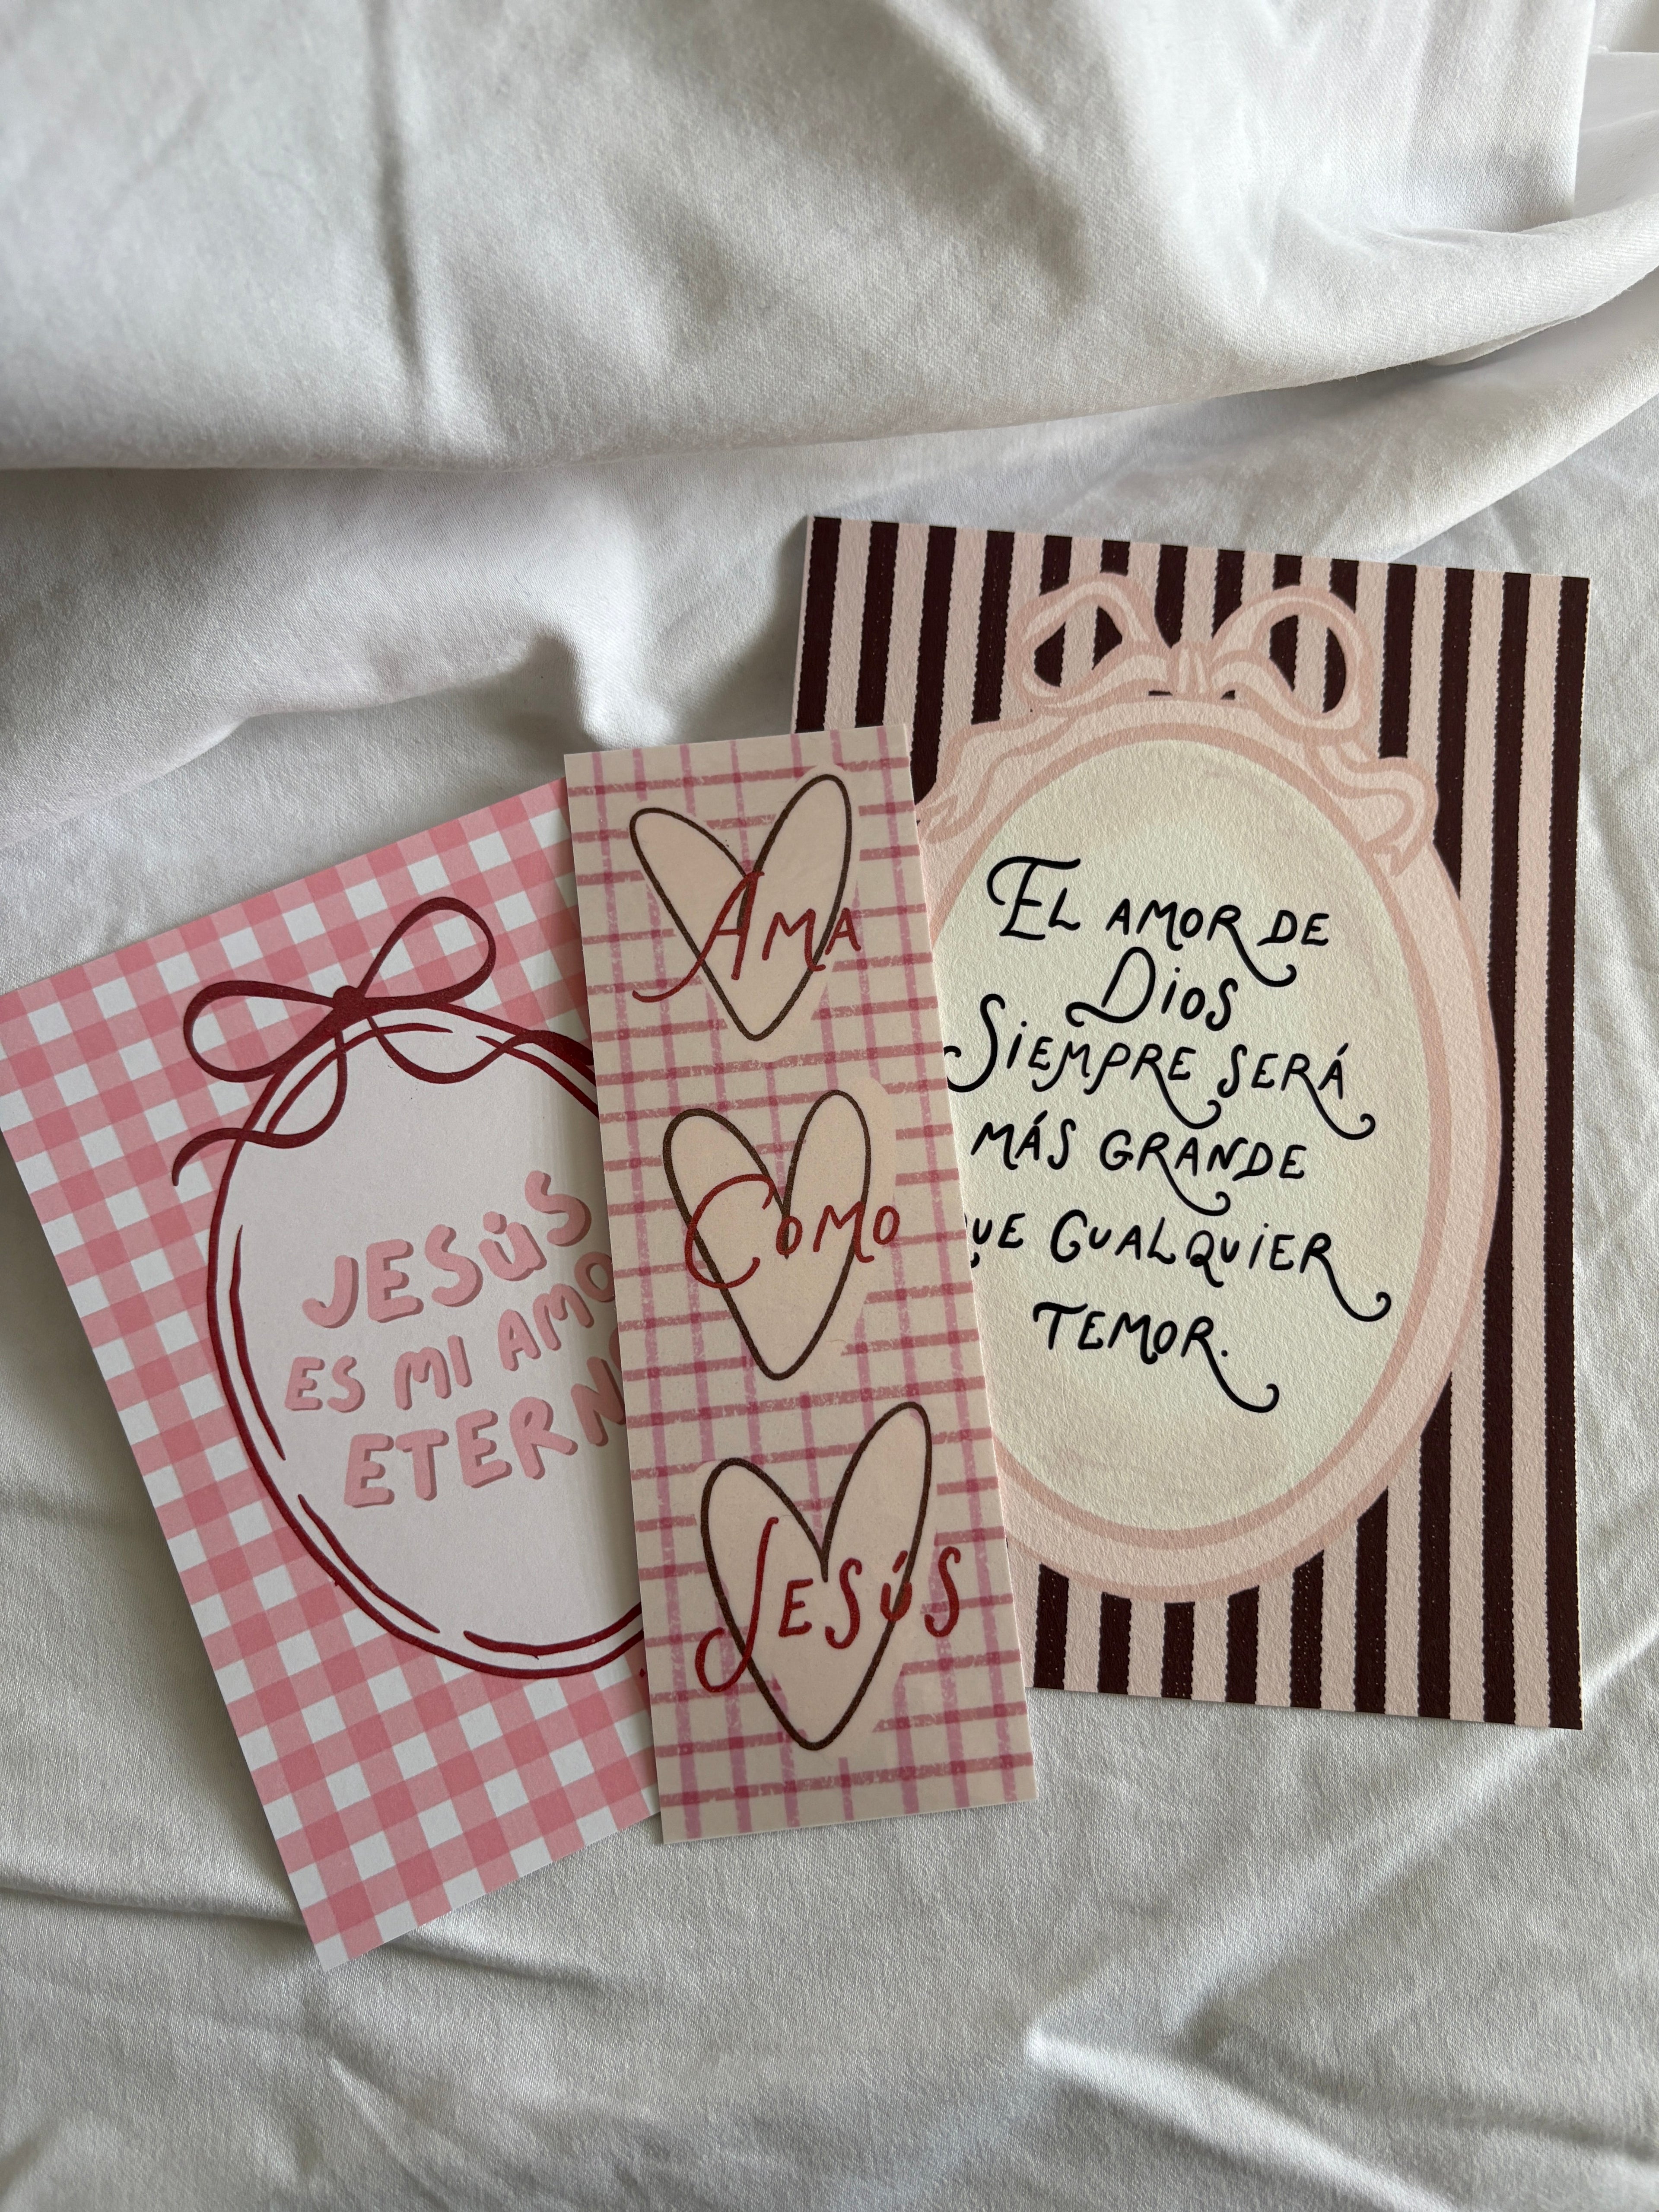 JESÚS
ES MI AMO
ETERN
AMA
COMO
JESÚS
EL AMOR DE
DIOS
SIEMPRE SERÁ
MÁS GRANDE
QUE CUALQUIER
TEMOR.